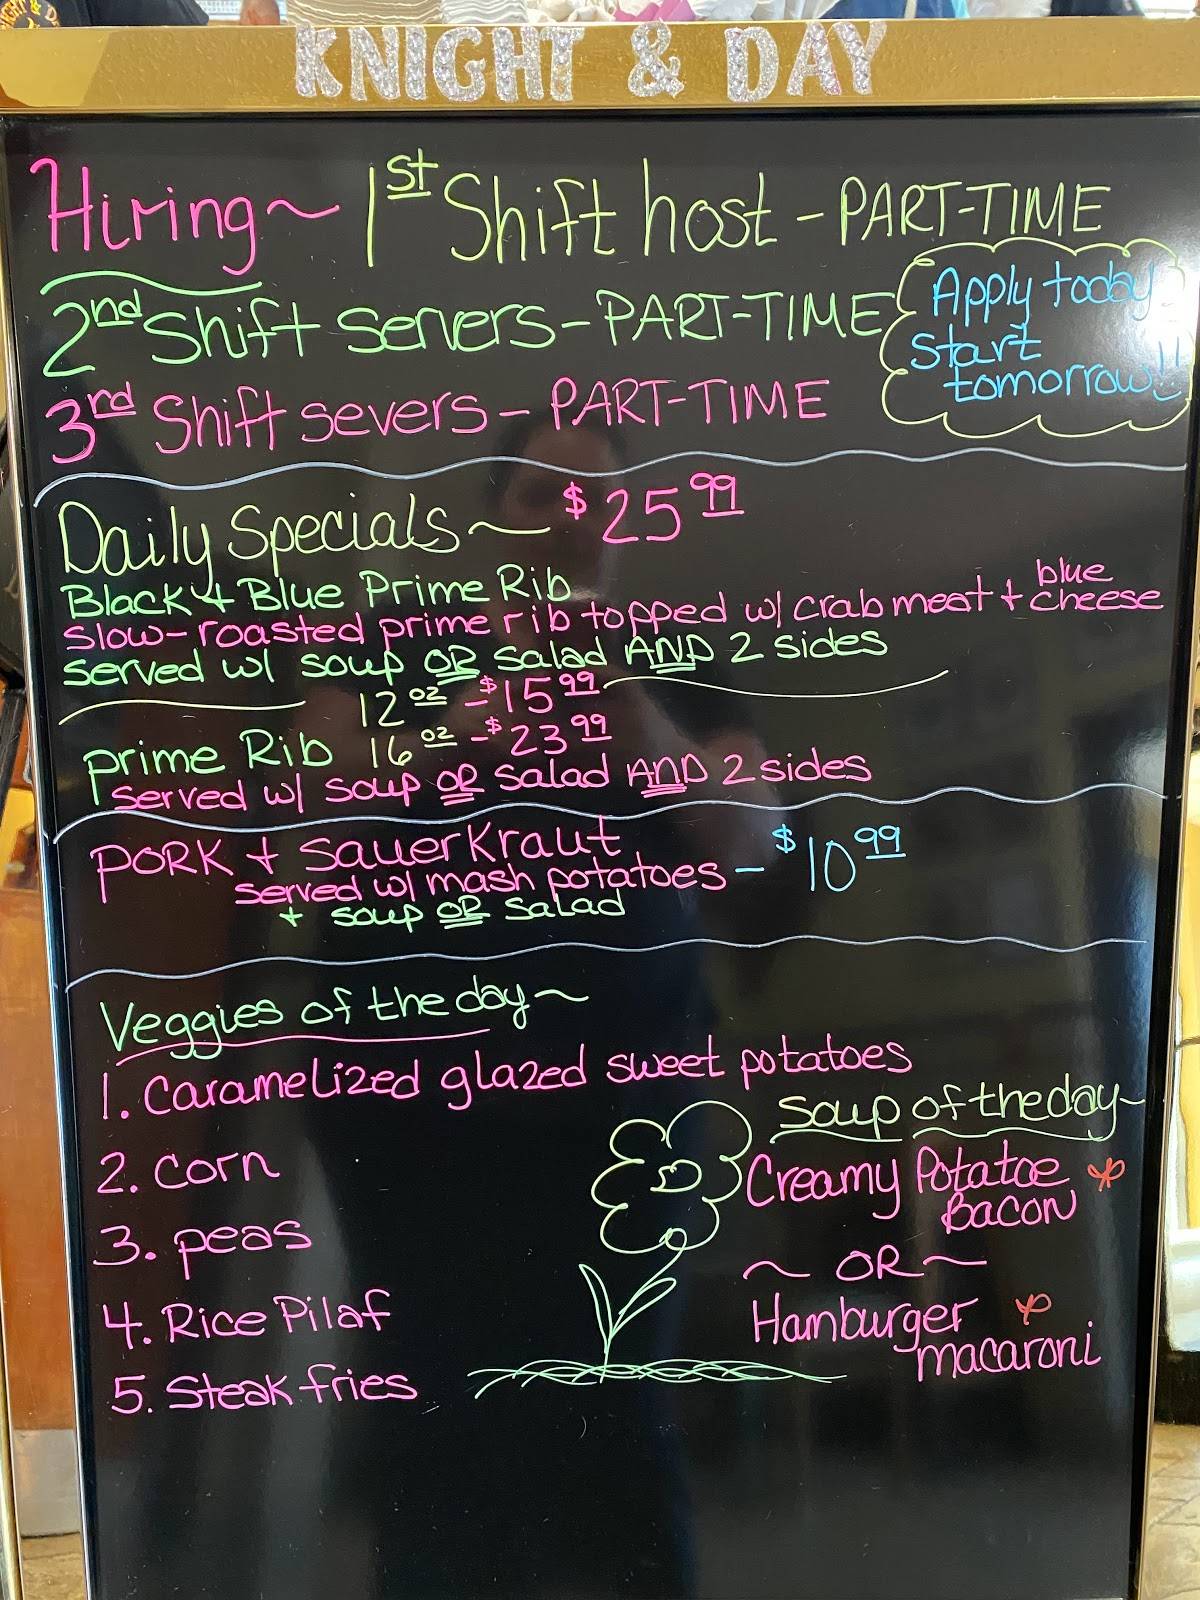 KNIGHT & DAY
Hiring~ 1st Shift host - PART-TIME
2nd Shift servers - PART-TIME
3rd Shift severs - PART-TIME
Apply today
start
tomorrow!!
Daily Specials ~ $25.99
Black + Blue Prime Rib
slow-roasted prime rib topped w/ crab meat + blue cheese
served w/ soup OR salad AND 2 sides
12 oz - $15.99
Prime Rib 16 oz - $23.99
served w/ soup OR salad AND 2 sides
PORK + Sauerkraut
served w/ mash potatoes - $10.99
+ soup OR salad
Veggies of the day ~
1. Caramelized glazed sweet potatoes
2. corn
3. peas
4. Rice Pilaf
5. Steak fries
Soup of the day ~
Creamy Potatoe
Bacon
~ OR ~
Hamburger
macaroni